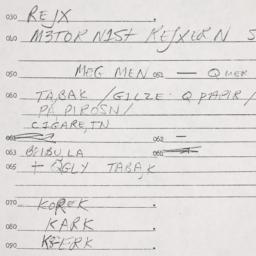 030 REJX .
040 M3TOR N1St REJXER N S
050 MEG MEN 051 — Q MER
060 TABAK /GILZE Q PAPIR/
PA, PIROSN/
CIGARE,TN
062 —
063 BIBULA
065 + QGLY TABA,K
070 KOREK .
080 KARK .
090 KERK .